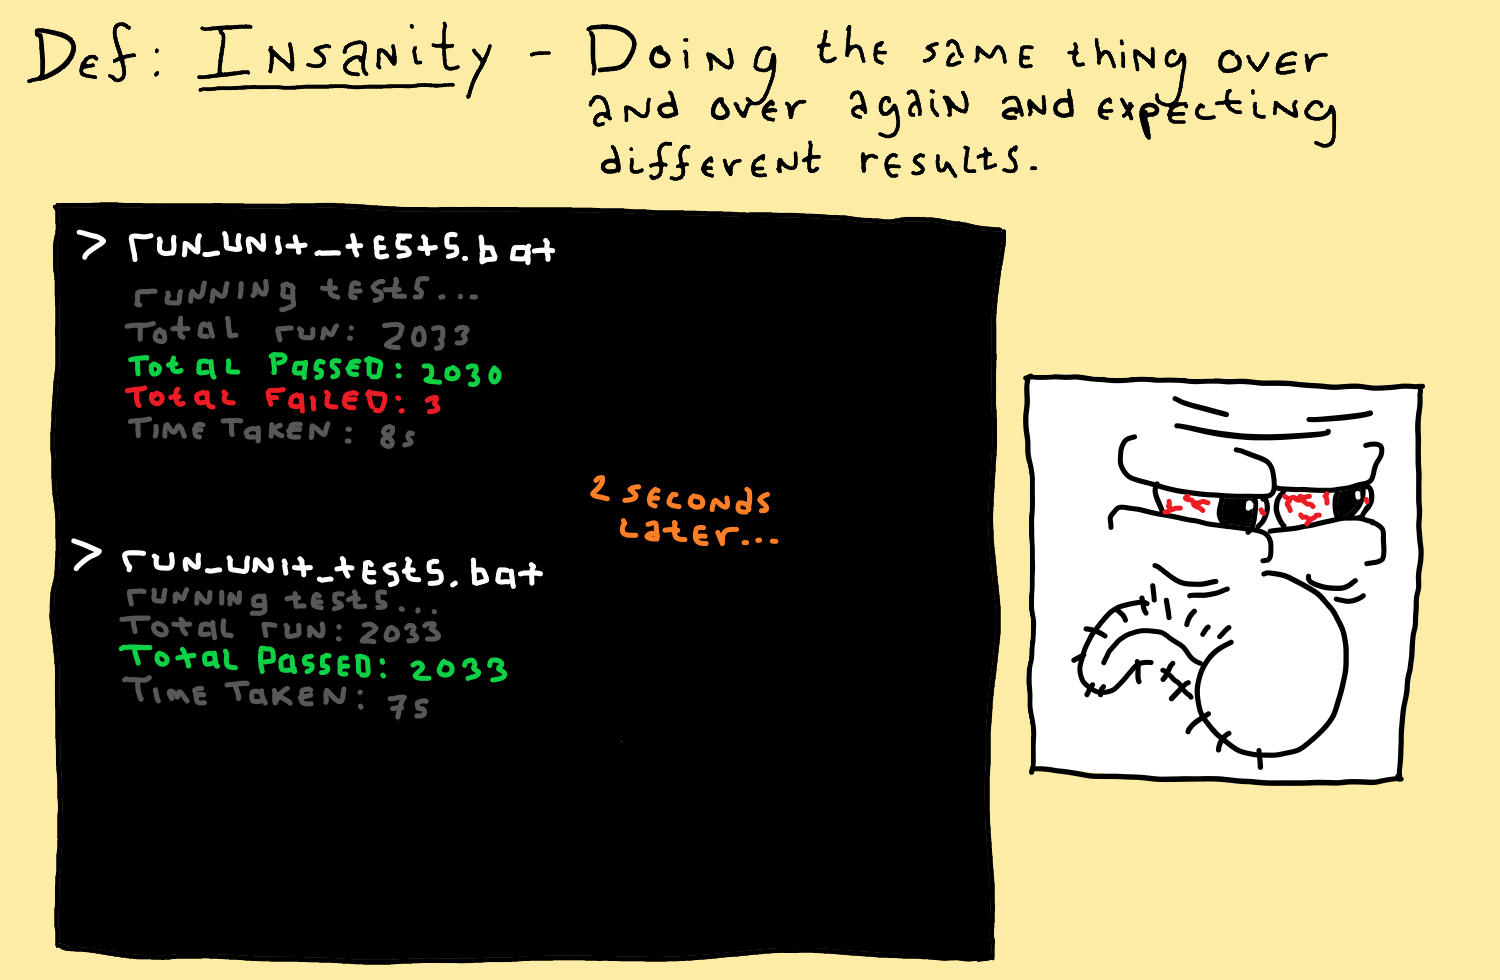 Def: Insanity - Doing the same thing over
and over again and expecting
different results.
> run_unit_tests.bat
running tests...
Total run: 2033
Total Passed: 2030
Total Failed: 3
Time Taken: 8s
2 seconds
later...
> run_unit_tests.bat
running tests...
Total run: 2033
Total Passed: 2033
Time Taken: 7s